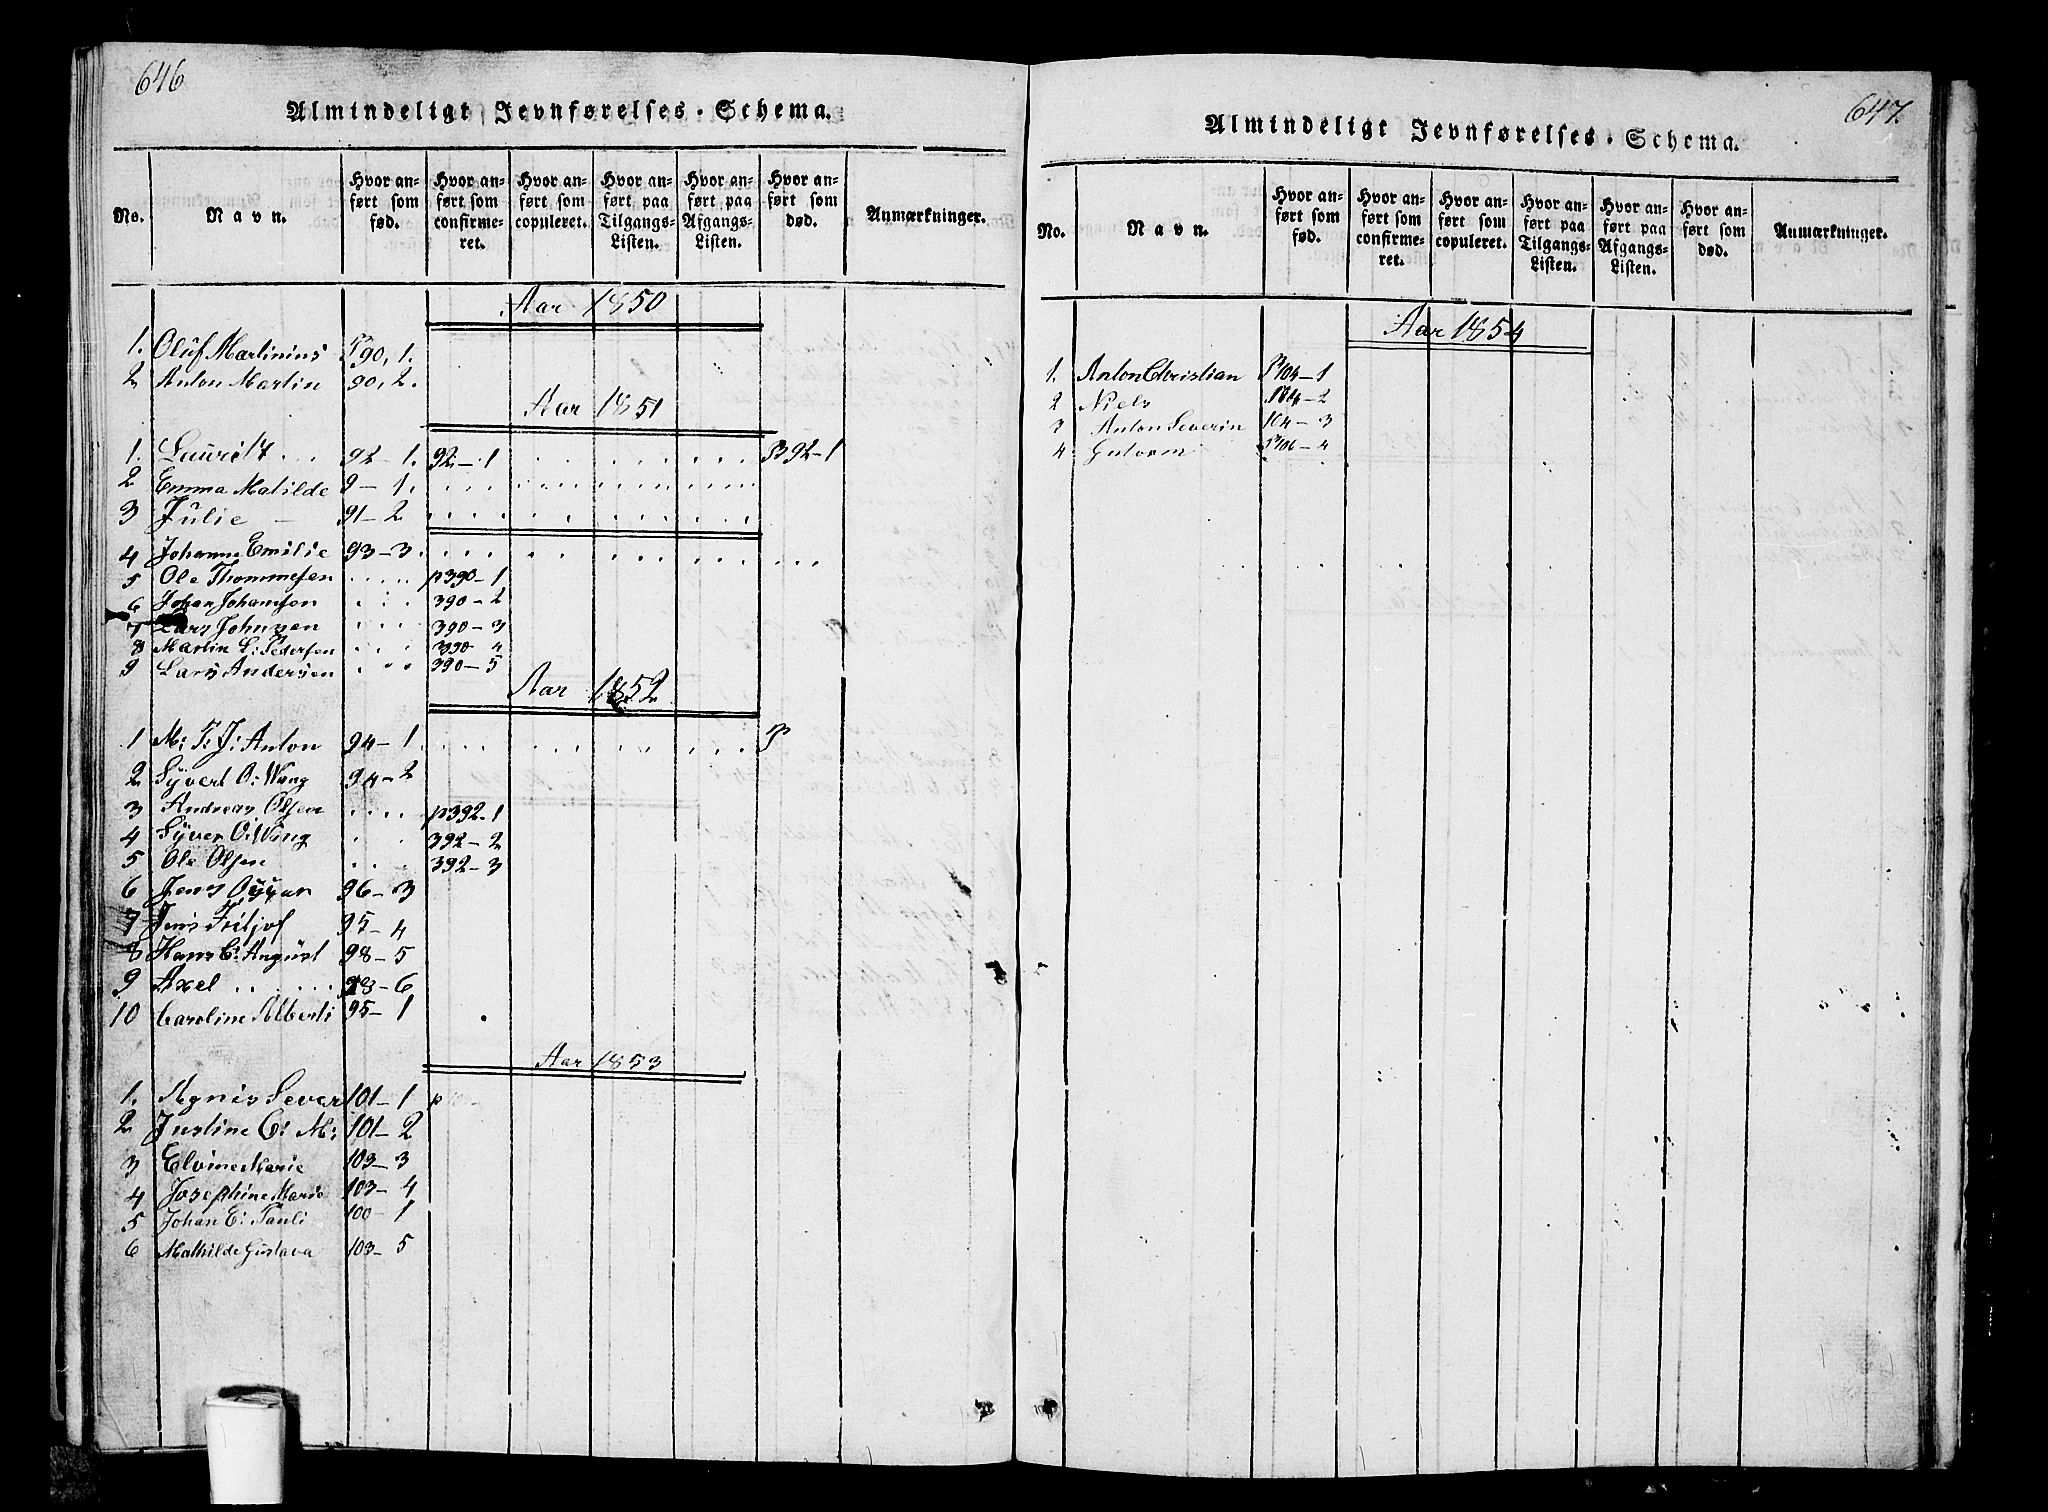 646
Almindeligt Jevnførelses-Schema.
No. Navn. Hvor anført som fød. Hvor anført som confirmeret. Hvor anført som copuleret. Hvor anført paa Tilgangs-Listen. Hvor anført paa Afgangs-Listen. Hvor anført som død. Anmærkninger.
Aar 1850
1. Oluf Martinius P90, 1.
2 Anton Martin 90, 2.
Aar 1851
1. Lauritz 92-1. 92-1 P392-1
2 Emma Matilde 9-1.
3 Julie - 91-2
4 Johanne Emilie 93-3.
5 Ole Thommesen p390-1
6 Johan Johansen 390-2
7 Lars Johnsen 390-3
8 Martin L: Pedersen 390-4
9 Lars Andersen 390-5
Aar 1852
1 M: P: J: Anton 94-1 P
2 Syvert O: Wang 94-2
3 Andreas Olsen p392-1
4 Syver O: Wang 392-2
5 Ole Olsen 392-3
6 Jens 96-3
7 Jens Fritjof 95-4
8 Hans C: August 98-5
9 Axel 98-6
10 Caroline Alberti 95-1
Aar 1853
1. Agnis Sever 101-1 p
2 Justine C: M: 101-2
3 Elvine Marie 103-3
4 Josephine Marie 103-4
5 Johan E: Pauli 100-1
6 Mathilde Gustava 103-5
647.
Almindeligt Jevnførelses-Schema.
No. Navn. Hvor anført som fød. Hvor anført som confirmeret. Hvor anført som copuleret. Hvor anført paa Tilgangs-Listen. Hvor anført paa Afgangs-Listen. Hvor anført som død. Anmærkninger.
Aar 1854
1. Anton Christian P104-1
2 Niels 104-2
3 Anton Severin 104-3
4 Gutorm P106-4